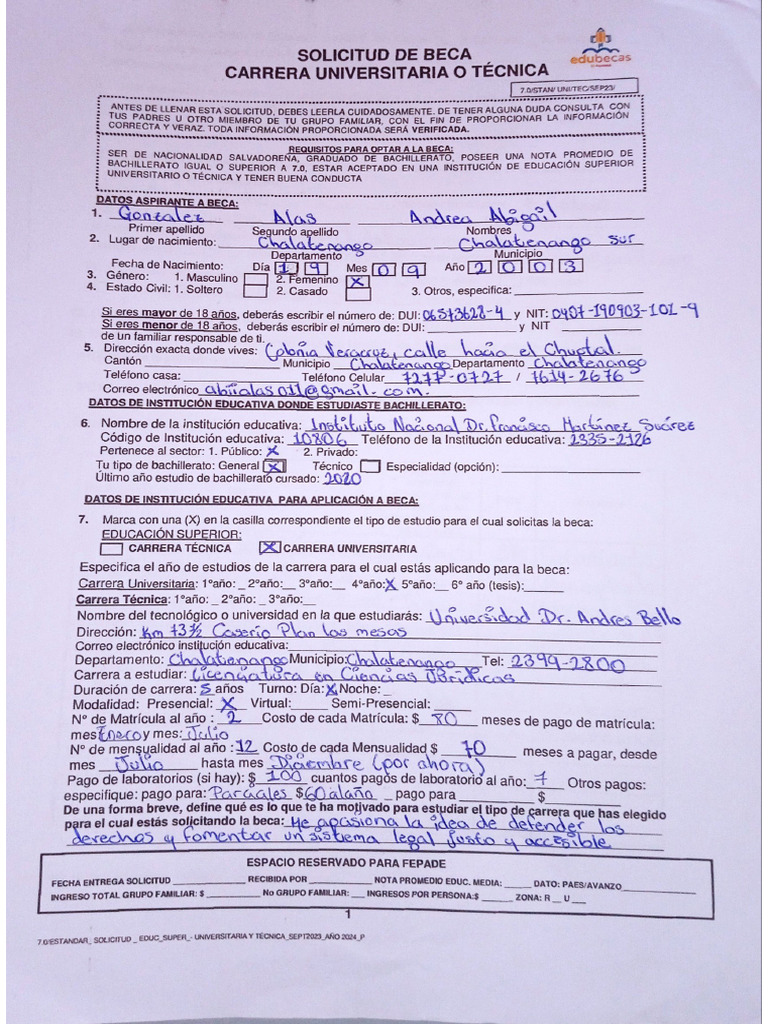 SOLICITUD DE BECA
CARRERA UNIVERSITARIA O TÉCNICA
edubecas
7.0/STAN/ UNI/TEC/SEP23/
ANTES DE LLENAR ESTA SOLICITUD, DEBES LEERLA CUIDADOSAMENTE. DE TENER ALGUNA DUDA CONSULTA CON
TUS PADRES U OTRO MIEMBRO DE TU GRUPO FAMILIAR, CON EL FIN DE PROPORCIONAR LA INFORMACIÓN
CORRECTA Y VERAZ. TODA INFORMACIÓN PROPORCIONADA SERÁ VERIFICADA.
REQUISITOS PARA OPTAR A LA BECA:
SER DE NACIONALIDAD SALVADOREÑA, GRADUADO DE BACHILLERATO, POSEER UNA NOTA PROMEDIO DE
BACHILLERATO IGUAL O SUPERIOR A 7.0, ESTAR ACEPTADO EN UNA INSTITUCIÓN DE EDUCACIÓN SUPERIOR
UNIVERSITARIO O TÉCNICA Y TENER BUENA CONDUCTA
DATOS ASPIRANTE A BECA:
1. Gonzalez Alas Andrea Abigail
Primer apellido Segundo apellido Nombres
2. Lugar de nacimiento: Chalatenango Chalatenango sur
Departamento Municipio
Fecha de Nacimiento: Día 19 Mes 09 Año 2003
3. Género: 1. Masculino 2. Femenino X
4. Estado Civil: 1. Soltero 2. Casado 3. Otros, especifica:
Si eres mayor de 18 años, deberás escribir el número de: DUI: 06573628-4 y NIT: 0407-190903-101-9
Si eres menor de 18 años, deberás escribir el número de: DUI: y NIT
de un familiar responsable de ti.
5. Dirección exacta donde vives: Colonia Veracruz, calle hacia el Chuptal.
Cantón Municipio Chalatenango Departamento Chalatenango
Teléfono casa: Teléfono Celular 7277-0727 / 7614-2676
Correo electrónico abiialas011@gmail.com.
DATOS DE INSTITUCIÓN EDUCATIVA DONDE ESTUDIASTE BACHILLERATO:
6. Nombre de la institución educativa: Instituto Nacional Dr. Francisco Martínez Suárez
Código de Institución educativa: 10806 Teléfono de la Institución educativa: 2335-2126
Pertenece al sector: 1. Público: X 2. Privado:
Tu tipo de bachillerato: General X Técnico Especialidad (opción):
Último año estudio de bachillerato cursado: 2020
DATOS DE INSTITUCIÓN EDUCATIVA PARA APLICACIÓN A BECA:
7. Marca con una (X) en la casilla correspondiente el tipo de estudio para el cual solicitas la beca:
EDUCACIÓN SUPERIOR:
CARRERA TÉCNICA X CARRERA UNIVERSITARIA
Especifica el año de estudios de la carrera para el cual estás aplicando para la beca:
Carrera Universitaria: 1°año: 2°año: 3°año: 4°año: X 5°año: 6° año (tesis):
Carrera Técnica: 1°año: 2°año: 3°año:
Nombre del tecnológico o universidad en la que estudiarás: Universidad Dr. Andres Bello
Dirección: Km 73½ Caserío Plan las mesas
Correo electrónico institución educativa:
Departamento: Chalatenango Municipio: Chalatenango Tel: 2399-2800
Carrera a estudiar: Licenciatura en Ciencias Jurídicas
Duración de carrera: 5 años Turno: Día: X Noche:
Modalidad: Presencial: X Virtual: Semi-Presencial:
N° de Matrícula al año : 2 Costo de cada Matrícula: $ 80 meses de pago de matrícula:
mes Enero y mes: Julio
N° de mensualidad al año : 12 Costo de cada Mensualidad $ 70 meses a pagar, desde
mes Julio hasta mes Diciembre (por ahora)
Pago de laboratorios (si hay): $ 100 cuantos pagos de laboratorio al año: 7 Otros pagos:
especifique: pago para: Parciales $60 al año pago para $
De una forma breve, define qué es lo que te ha motivado para estudiar el tipo de carrera que has elegido
para el cual estás solicitando la beca: Me apasiona la idea de defender los
derechos y fomentar un sistema legal justo y accesible
ESPACIO RESERVADO PARA FEPADE
FECHA ENTREGA SOLICITUD RECIBIDA POR NOTA PROMEDIO EDUC. MEDIA: DATO: PAES/AVANZO
INGRESO TOTAL GRUPO FAMILIAR: $ No GRUPO FAMILIAR: INGRESOS POR PERSONA:$ ZONA: R U
1
7.0/ESTANDAR_ SOLICITUD _ EDUC_SUPER_- UNIVERSITARIA Y TÉCNICA_SEPT2023_AÑO 2024_P